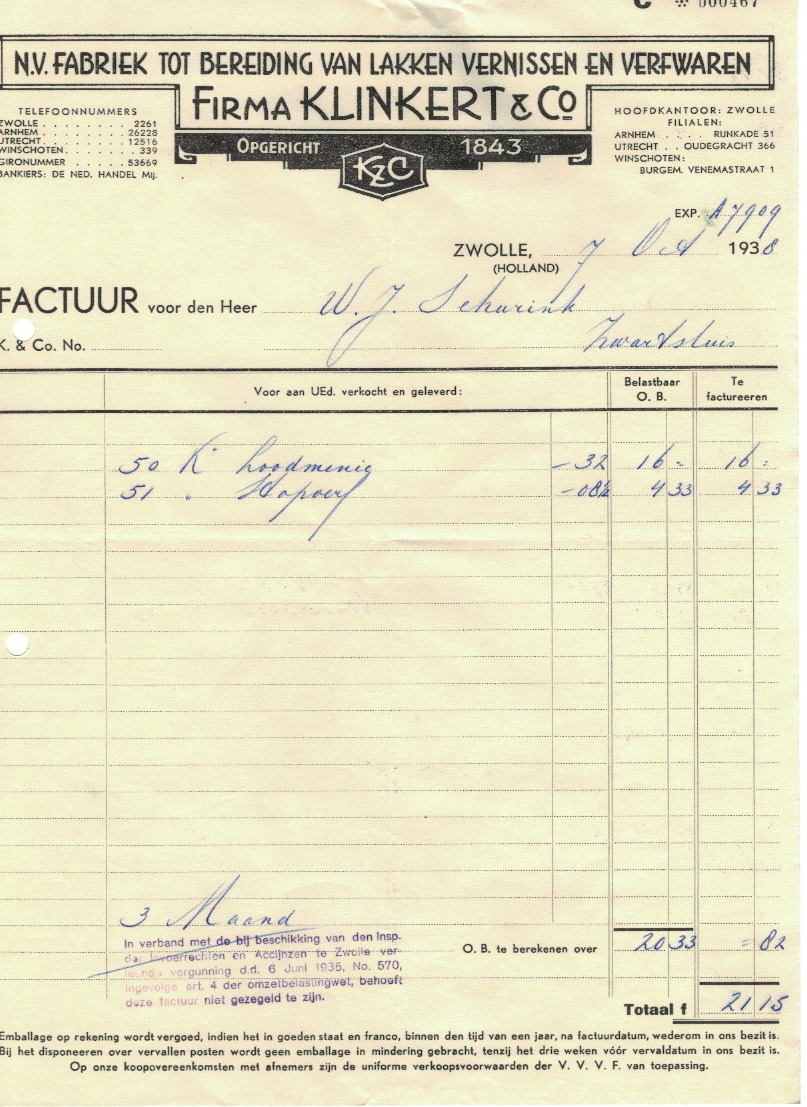 C 000467
N.V. FABRIEK TOT BEREIDING VAN LAKKEN VERNISSEN EN VERFWAREN
FIRMA KLINKERT & Co
OPGERICHT 1843
KZC
TELEFOONNUMMERS
ZWOLLE . . . . . . . . 2261
ARNHEM . . . . . . . 26228
UTRECHT . . . . . . . 12516
WINSCHOTEN . . . . . . 339
GIRONUMMER . . . . . 53669
BANKIERS: DE NED. HANDEL Mij.
HOOFDKANTOOR: ZWOLLE
FILIALEN:
ARNHEM . . . . RIJNKADE 51
UTRECHT . . OUDEGRACHT 366
WINSCHOTEN:
BURGEM. VENEMASTRAAT 1
EXP. A 7909
ZWOLLE, 7 Oct 1938
(HOLLAND)
FACTUUR voor den Heer W. J. Schurink
K. & Co. No. Zwartsluis
Voor aan UEd. verkocht en geleverd: Belastbaar O. B. Te factureeren
50 K° Loodmenie - 32 16 = 16 =
51 " Stopverf - 08½ 4 33 4 33
3 Maand
In verband met de bij beschikking van den Insp.
der Invoerrechten en Accijnzen te Zwolle ver-
leende vergunning d.d. 6 Juni 1935, No. 570,
ingevolge art. 4 der omzetbelastingwet, behoeft
deze factuur niet gezegeld te zijn.
O. B. te berekenen over 20 33 = 82
Totaal f 21 15
Emballage op rekening wordt vergoed, indien het in goeden staat en franco, binnen den tijd van een jaar, na factuurdatum, wederom in ons bezit is.
Bij het disponeeren over vervallen posten wordt geen emballage in mindering gebracht, tenzij het drie weken vóór vervaldatum in ons bezit is.
Op onze koopovereenkomsten met afnemers zijn de uniforme verkoopsvoorwaarden der V. V. V. F. van toepassing.